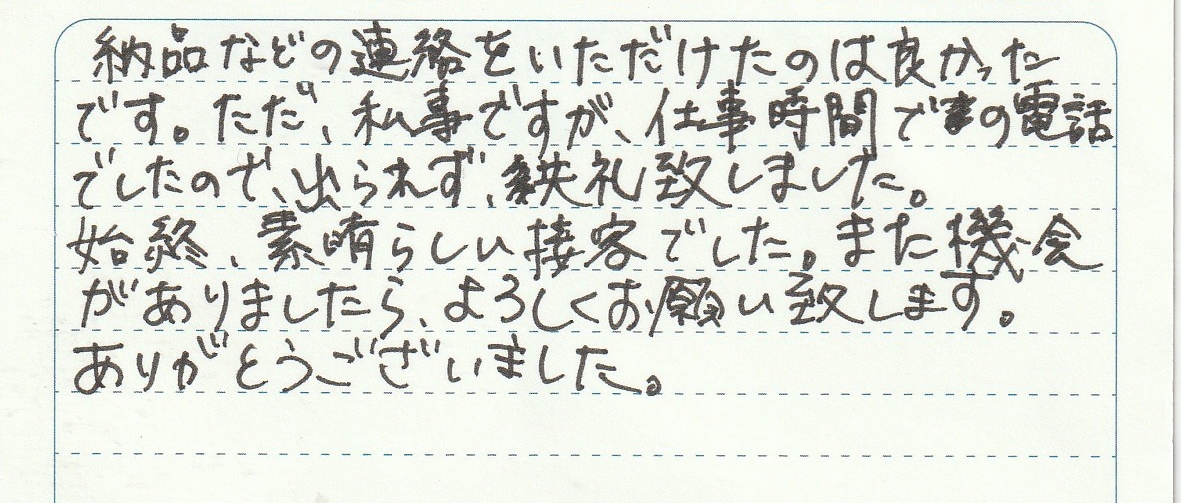 納品などの連絡をいただけたのは良かった
です。ただ、私事ですが、仕事時間での電話
でしたので、出られず、失礼致しました。
始終、素晴らしい接客でした。また機会
がありましたら、よろしくお願い致します。
ありがとうございました。